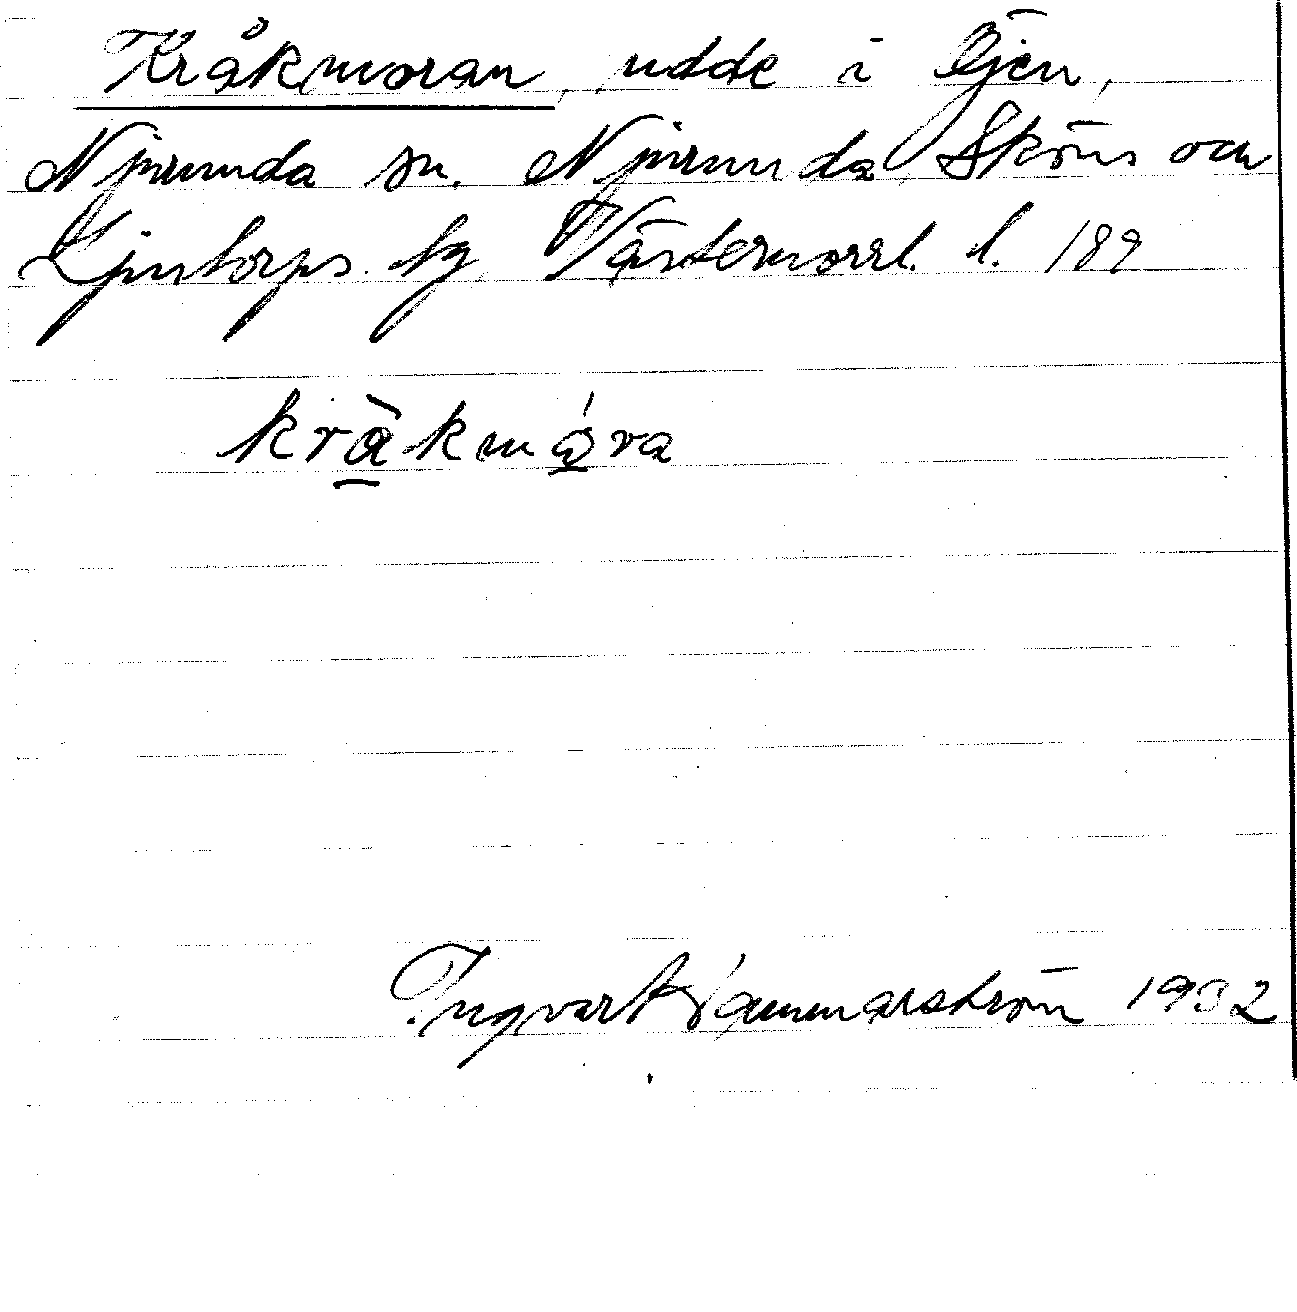 Kråkmoran, udde i Öjen,
Njurunda sn. Njurunda, Sköns och
Ljustorps tg Västernorrl. l. 189
kràkmóra
Ingvar Hammarström 1932